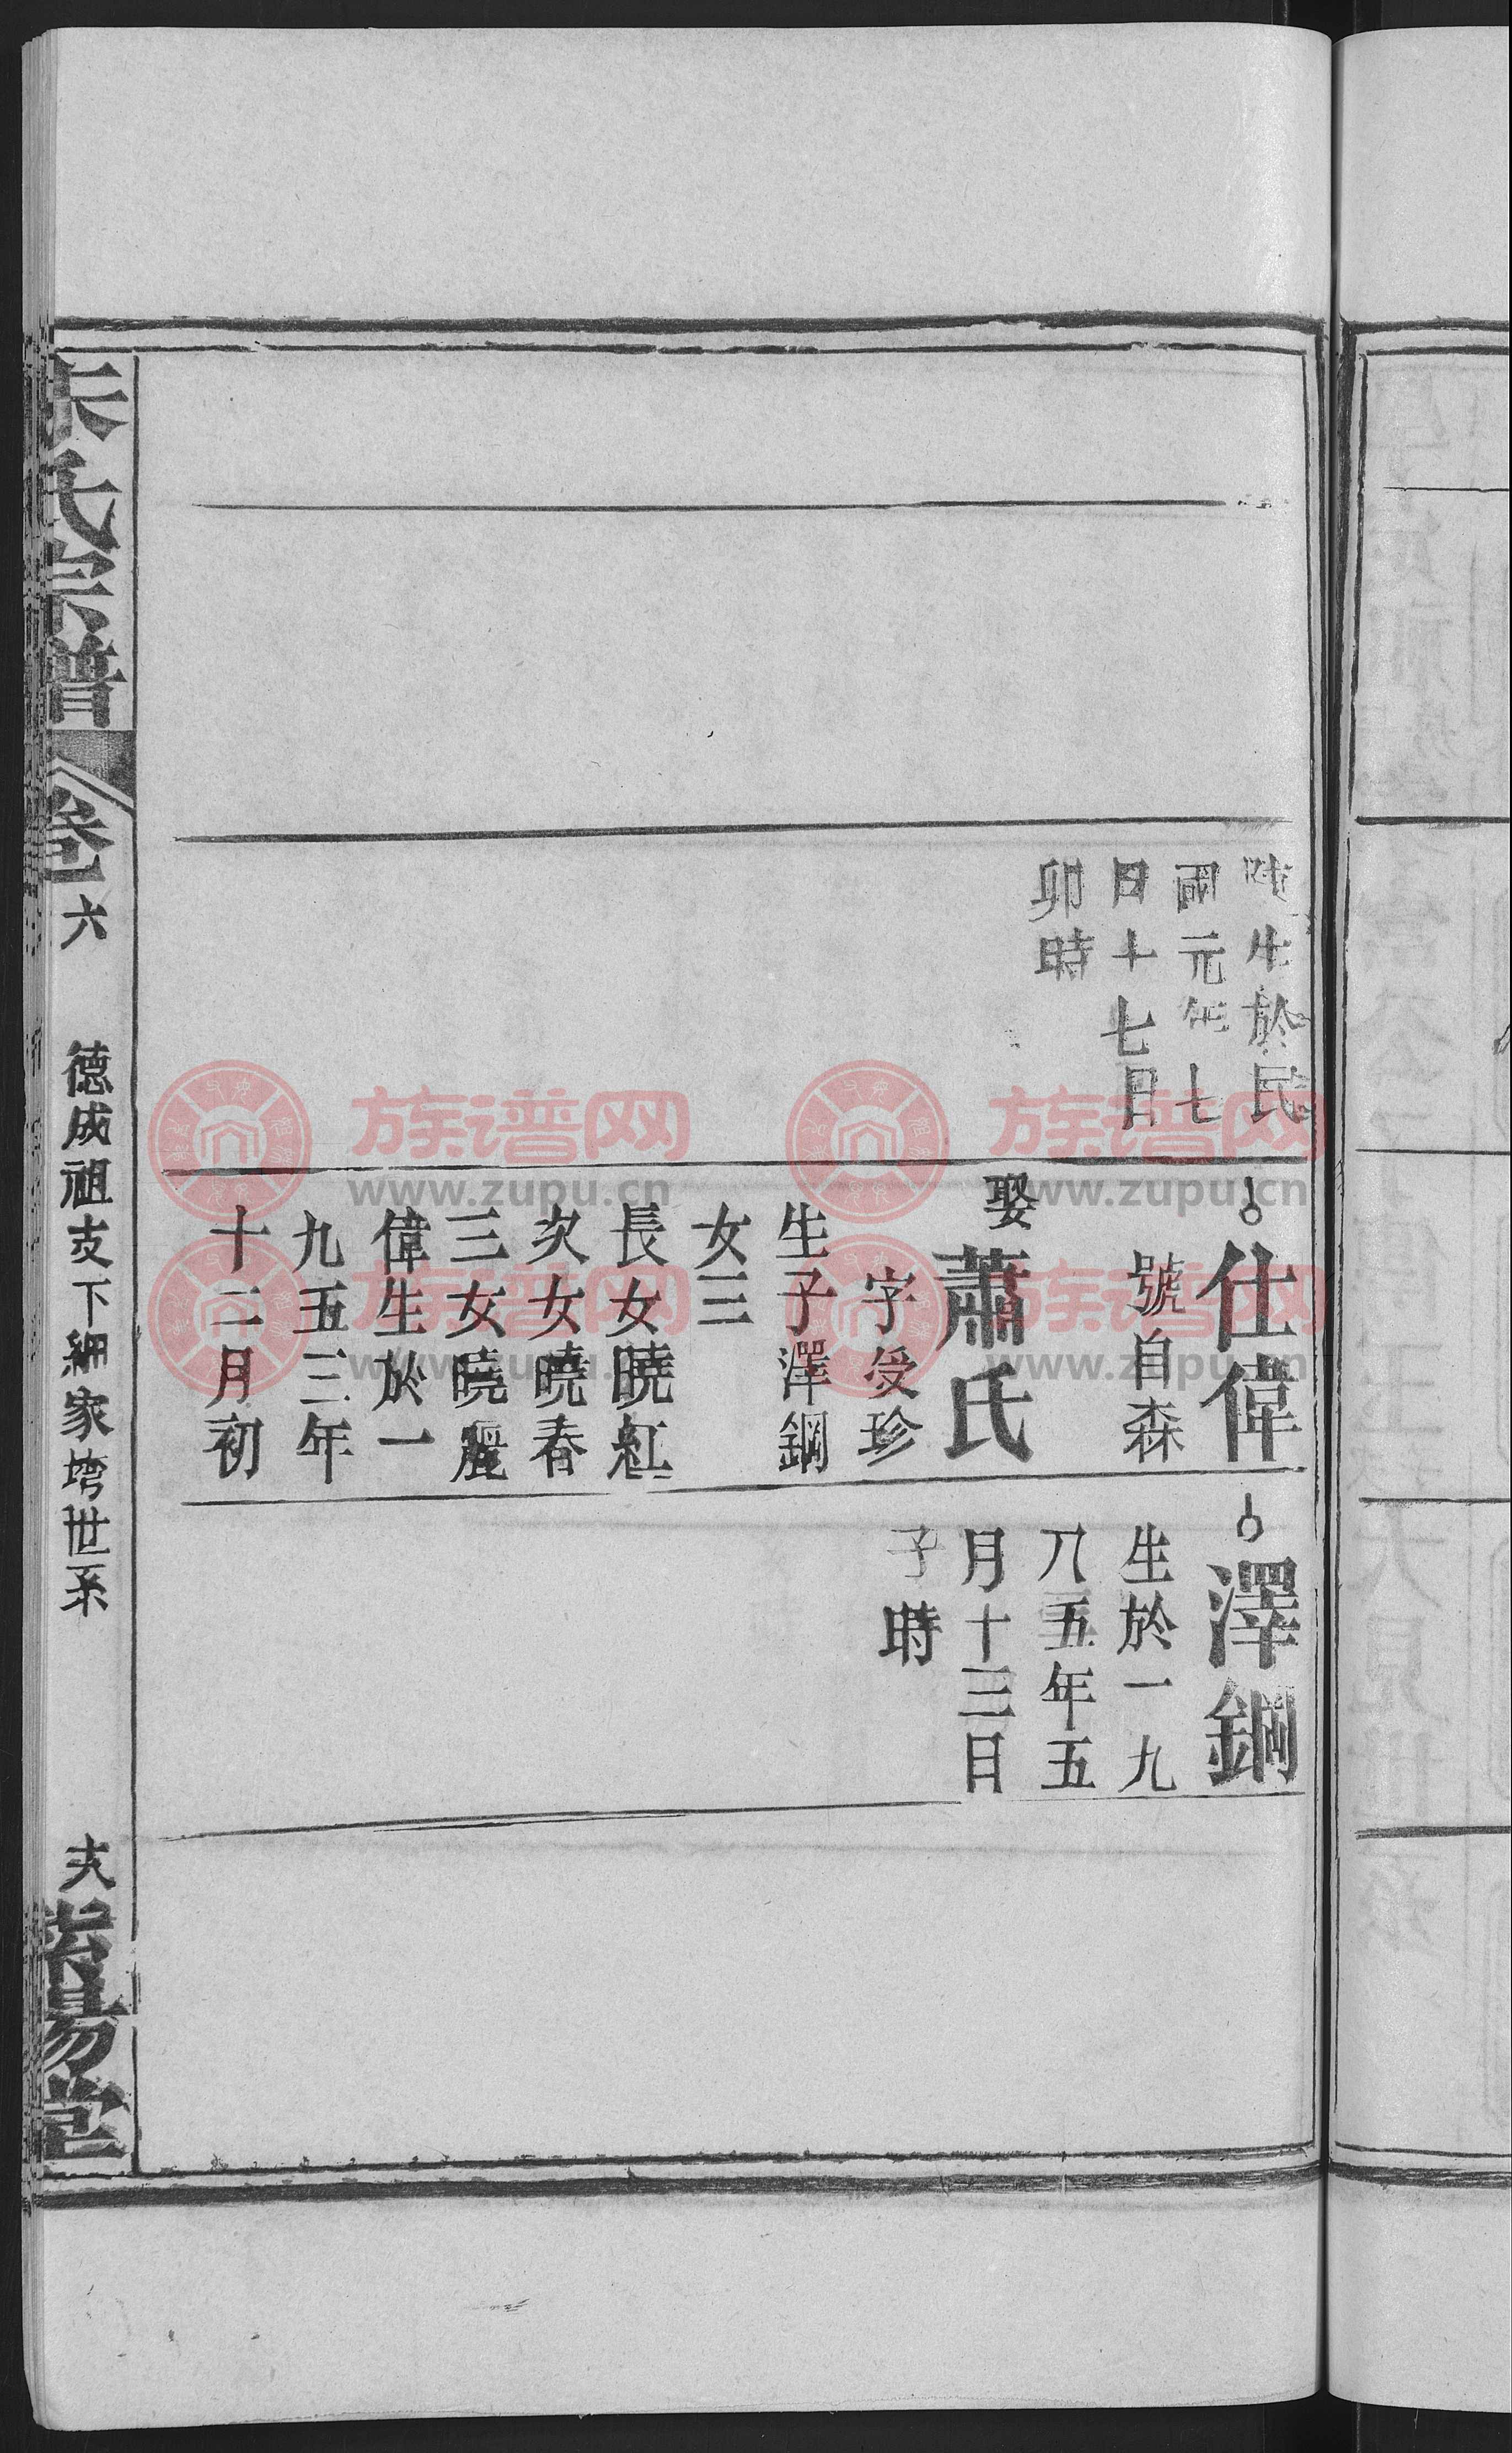 氏宗譜
卷六
德成祖支下細家塆世系
堂
生於民
國元年七
月十七日
卯時
仕偉
號自森
娶蕭氏
字受珍
生子澤鋼
女三
長女曉紅
次女曉春
三女曉麗
偉生於一
九五三年
十二月初
澤鋼
生於一九
八五年五
月十三日
子時
族谱网
www.zupu.cn
族谱网
www.zupu.cn
族谱网
www.zupu.cn
族谱网
www.zupu.cn